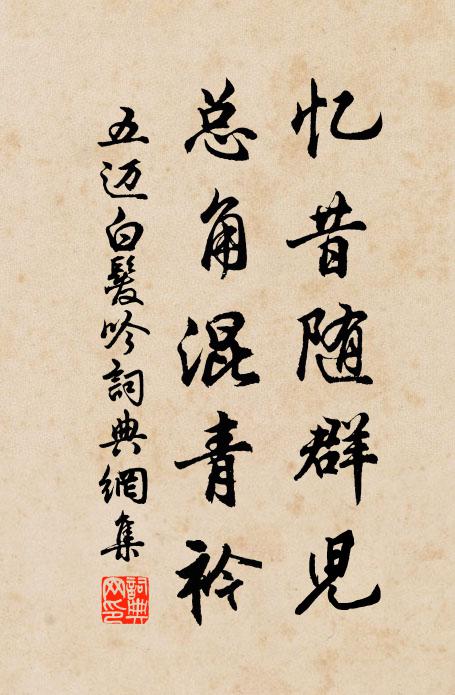 忆昔随群児
总角混青衿
五迈白髮吟詞典網集
詞典
网印